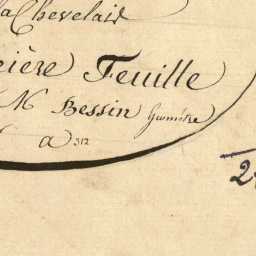 la Chevelais
ière Feuille
M Bessin Géomètre
a 312
2